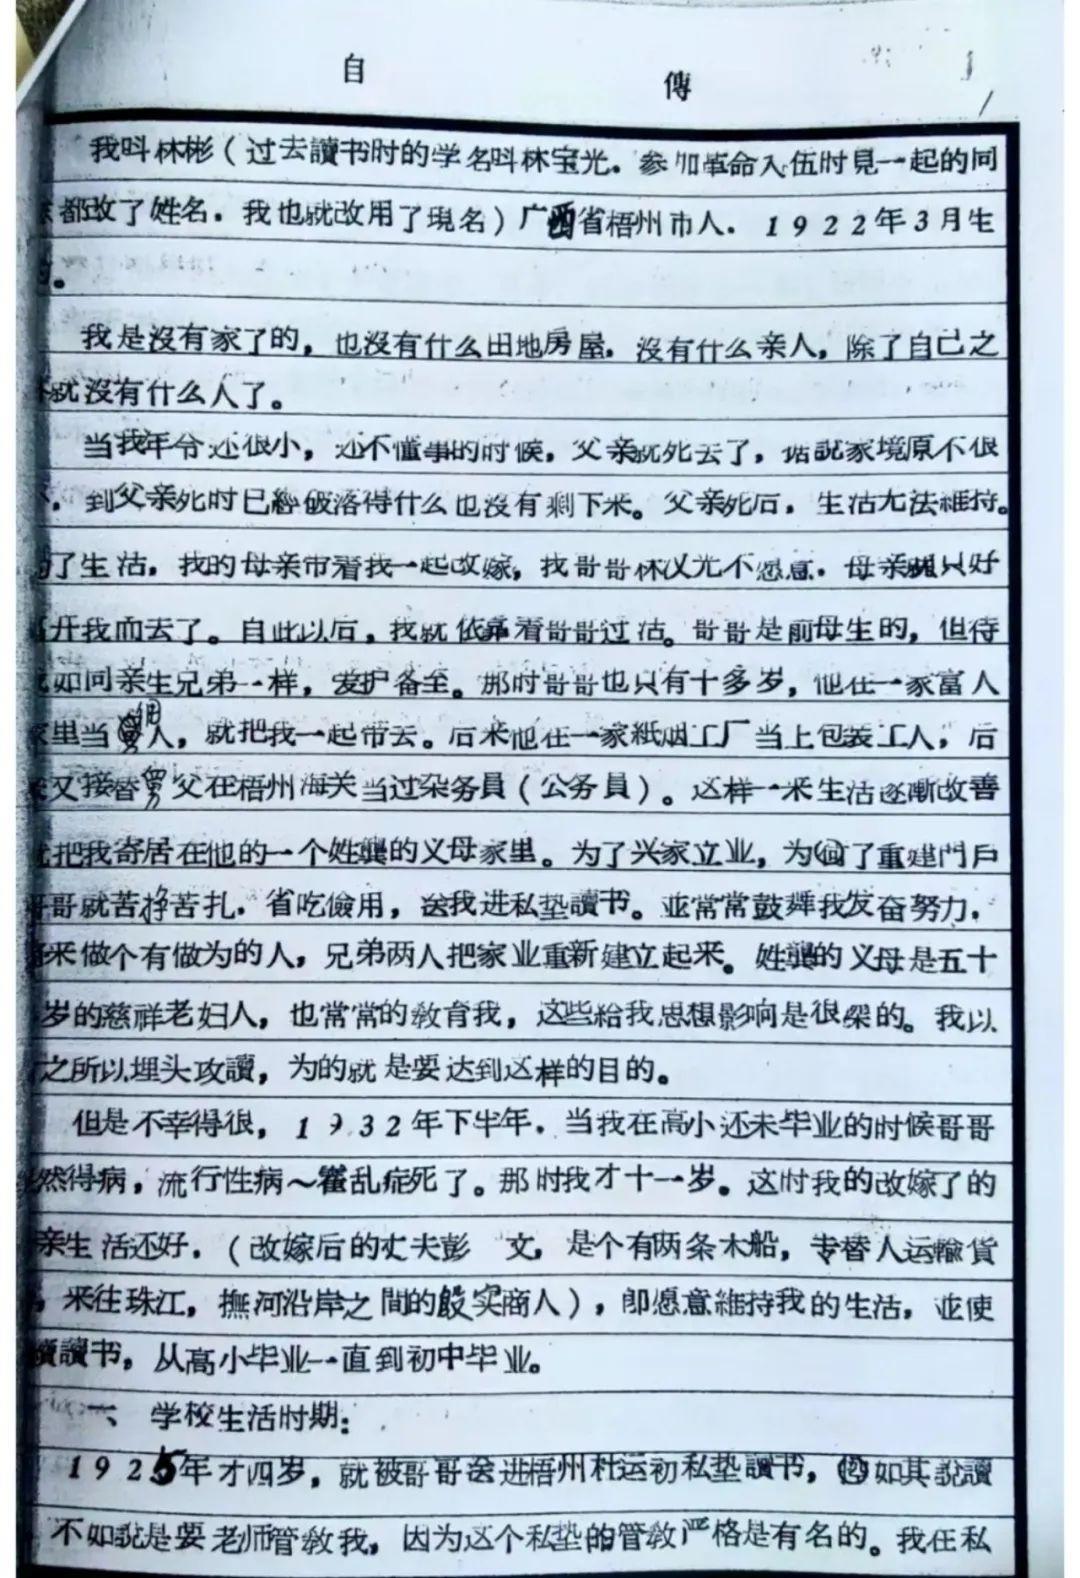 自 傳
1
我叫林彬（过去讀书时的学名叫林宝光。参加革命入伍时見一起的同
都改了姓名．我也就改用了現名）广西省梧州市人．1922年3月生
。
我是沒有家了的，也沒有什么田地房屋．沒有什么亲人，除了自己之
就沒有什么人了。
当我年令还很小，还不懂事的时候，父亲就死去了，据說家境原不很
，到父亲死时已經破落得什么也沒有剩下来。父亲死后，生活无法維持。
了生活．我的母亲带着我一起改嫁，我哥哥林义光不愿意．母亲只好
开我而去了。自此以后，我就依靠着哥哥过活。哥哥是前母生的，但待
如同亲生兄弟一样，爱护备至。那时哥哥也只有十多岁，他在一家富人
家里当佣人，就把我一起带去。后来他在一家紙烟工厂当上包装工人，后
又接替舅父在梧州海关当过杂务員（公务員）。这样一来生活逐漸改善
就把我寄居在他的一个姓龔的义母家里。为了兴家立业，为了重建門戶
哥哥就苦掙苦扎．省吃儉用，送我进私塾讀书。並常常鼓舞我发奋努力，
来做个有做为的人，兄弟两人把家业重新建立起来。姓龔的义母是五十
岁的慈祥老妇人，也常常的教育我，这些給我思想影响是很深的。我以
之所以埋头攻讀，为的就是要达到这样的目的。
但是不幸得很，1932年下半年．当我在高小还未毕业的时候哥哥
然得病，流行性病～霍乱症死了。那时我才十一岁。这时我的改嫁了的
亲生活还好．（改嫁后的丈夫彭 文，是个有两条木船，专替人运輸貨
，来往珠江，撫河沿岸之間的殷实商人），即愿意維持我的生活，並使
讀书，从高小毕业一直到初中毕业。
一、学校生活时期：
1925年才四岁，就被哥哥送进梧州杜运初私塾讀书，如其說讀
不如說是要老师管教我，因为这个私塾的管教严格是有名的。我在私